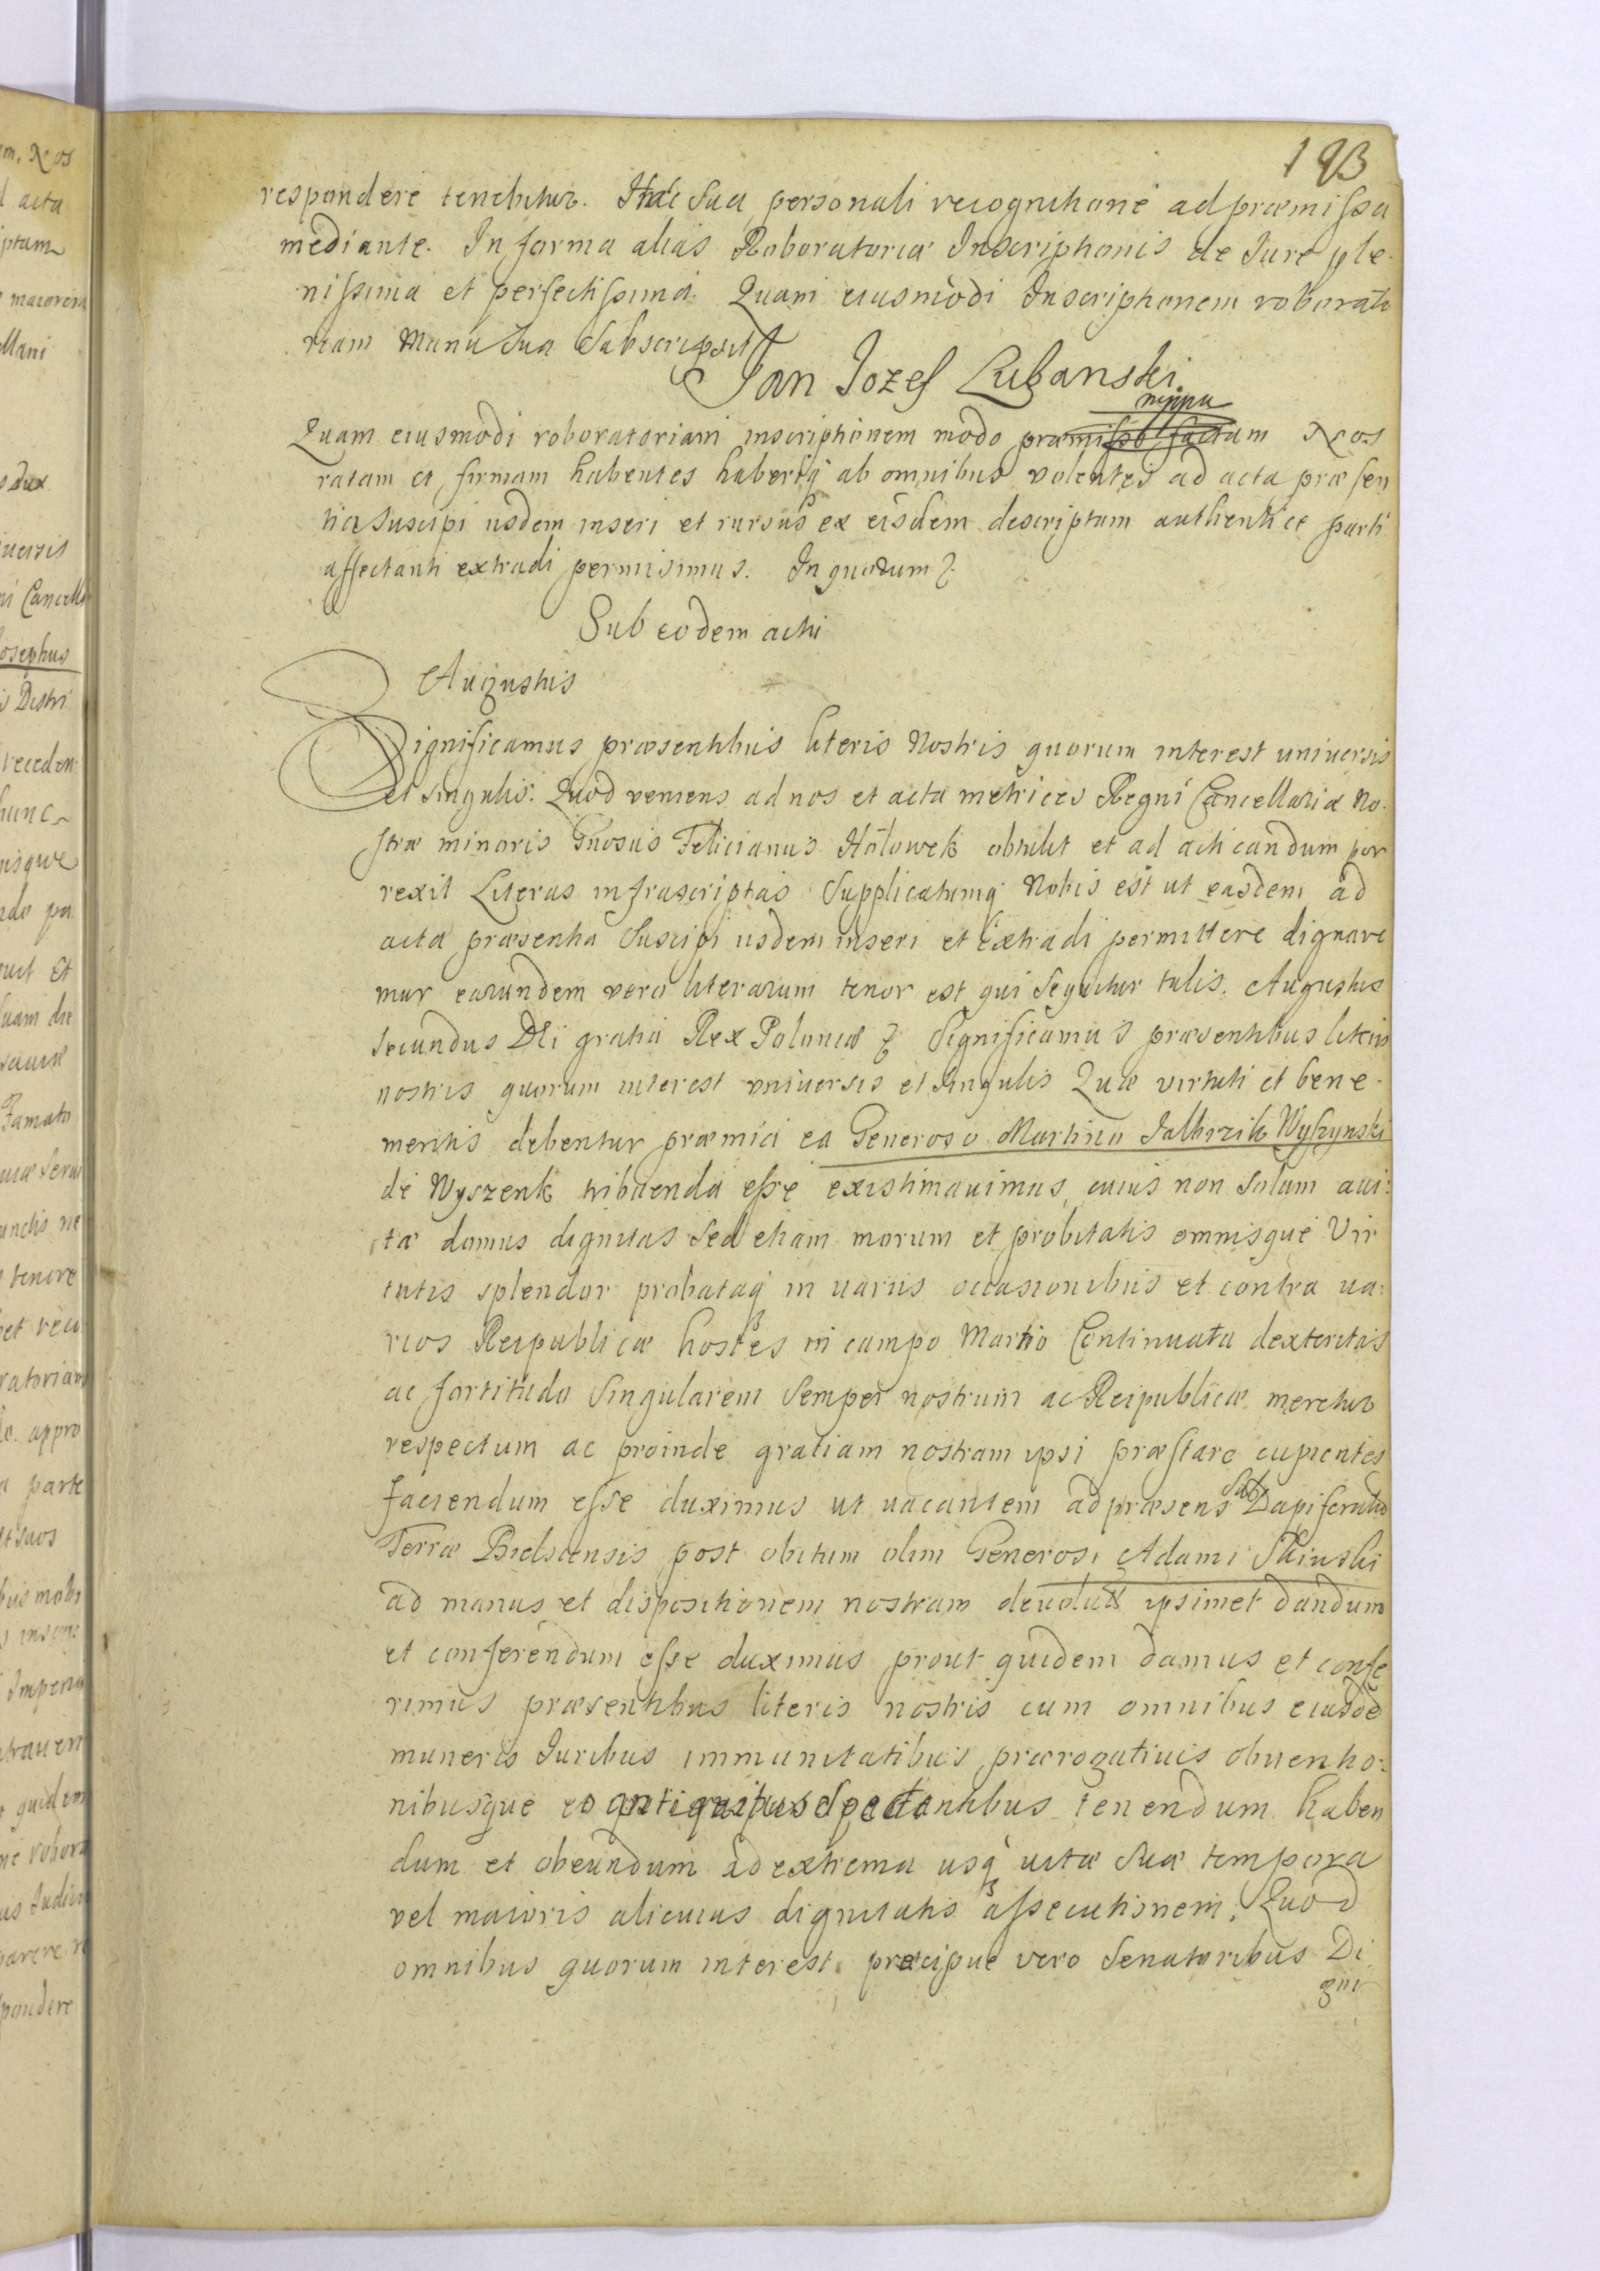 193
respondere tenebitur. Hac Sua personali recognitione ad præmissa
mediante. In forma alias Roboratoriæ Inscriptionis de Jure ple-
nissima et perfectissima. Quam eiusmodi Inscriptionem roborato
riam Manu Sua Subscripsit
Jan Jozef Lubanski
mppa
Quam eiusmodi roboratoriam inscriptionem modo præmisso factam Nos
ratam et firmam habentes haberiq ab omnibus volentes ad acta præsen
tia suscipi iisdem inseri et rursus ex eisdem descriptam authentice parti
affectanti extradi permisimus. In quorum
Sub eodem actu
Augustus
Significamus præsentibus literis Nostris quorum interest universis
et singulis. Quod veniens ad nos et acta metrices Regni Cancellariæ No-
stræ minoris Gnosus Felicianus Holowek obtulit et ad acticandum por
rexit Literas infrascriptas Supplicatumq Nobis est ut easdem ad
acta præsentia Suscipi iisdem inseri et extradi permittere dignare
mur earundem vero literarum tenor est qui sequitur talis. Augustus
Secundus Dei gratia Rex Poloniæ Significamus præsentibus literis
nostris quorum interest universis et singulis Quæ virtuti et bene-
meritis debentur præmia ea Generoso Martino Jalbrzik Wyszynski
de Wyszenk tribuenda esse existimavimus cuius non Solum avi:
tæ domus dignitas Sed etiam morum et probitatis omnisque Vir
tutis splendor probataq in variis occasionibus et contra va:
rios Reipublicæ hostes in campo Martio Continuata dexteritas
ac fortitudo Singularem Semper nostrum ac Reipublicæ meretur
respectum ac proinde gratiam nostram ipsi præstare cupientes
faciendum esse duximus ut vacantem ad præsens Sub Dapiferatum
Terræ Bielscensis post obitum olim Generosi Adami Skiwski
ad manus et dispositionem nostram devolut ipsimet dandum
et conferendum esse duximus prout quidem damus et confe
rimus præsentibus literis nostris cum omnibus eiusde
muneris Juribus immunitatibus prærogativis obventio:
nibusque eo antiquitus spectantibus tenendum haben
dum et obeundum ad extrema usq vitæ Suæ tempora
vel maioris alicuius dignitatis assecutionem. Quod
omnibus quorum interest præcipue vero Senatoribus Di
gni